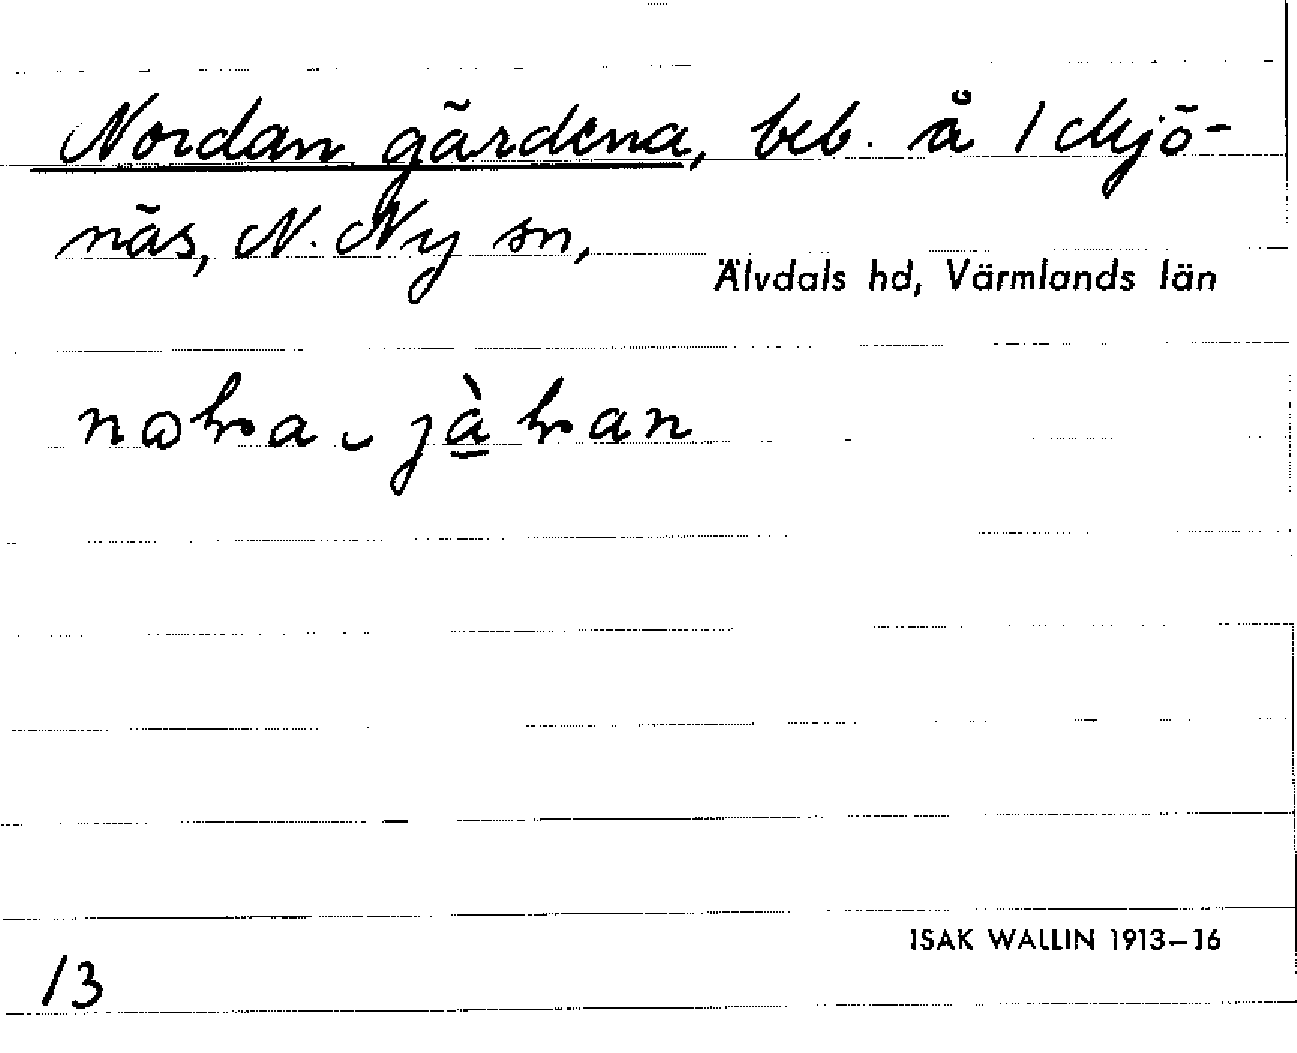 Nordangärdena, beb. å 1 Mjö-
näs, N. Ny sn,
Älvdals hd, Värmlands län
ISAK WALLIN 1913–16
13